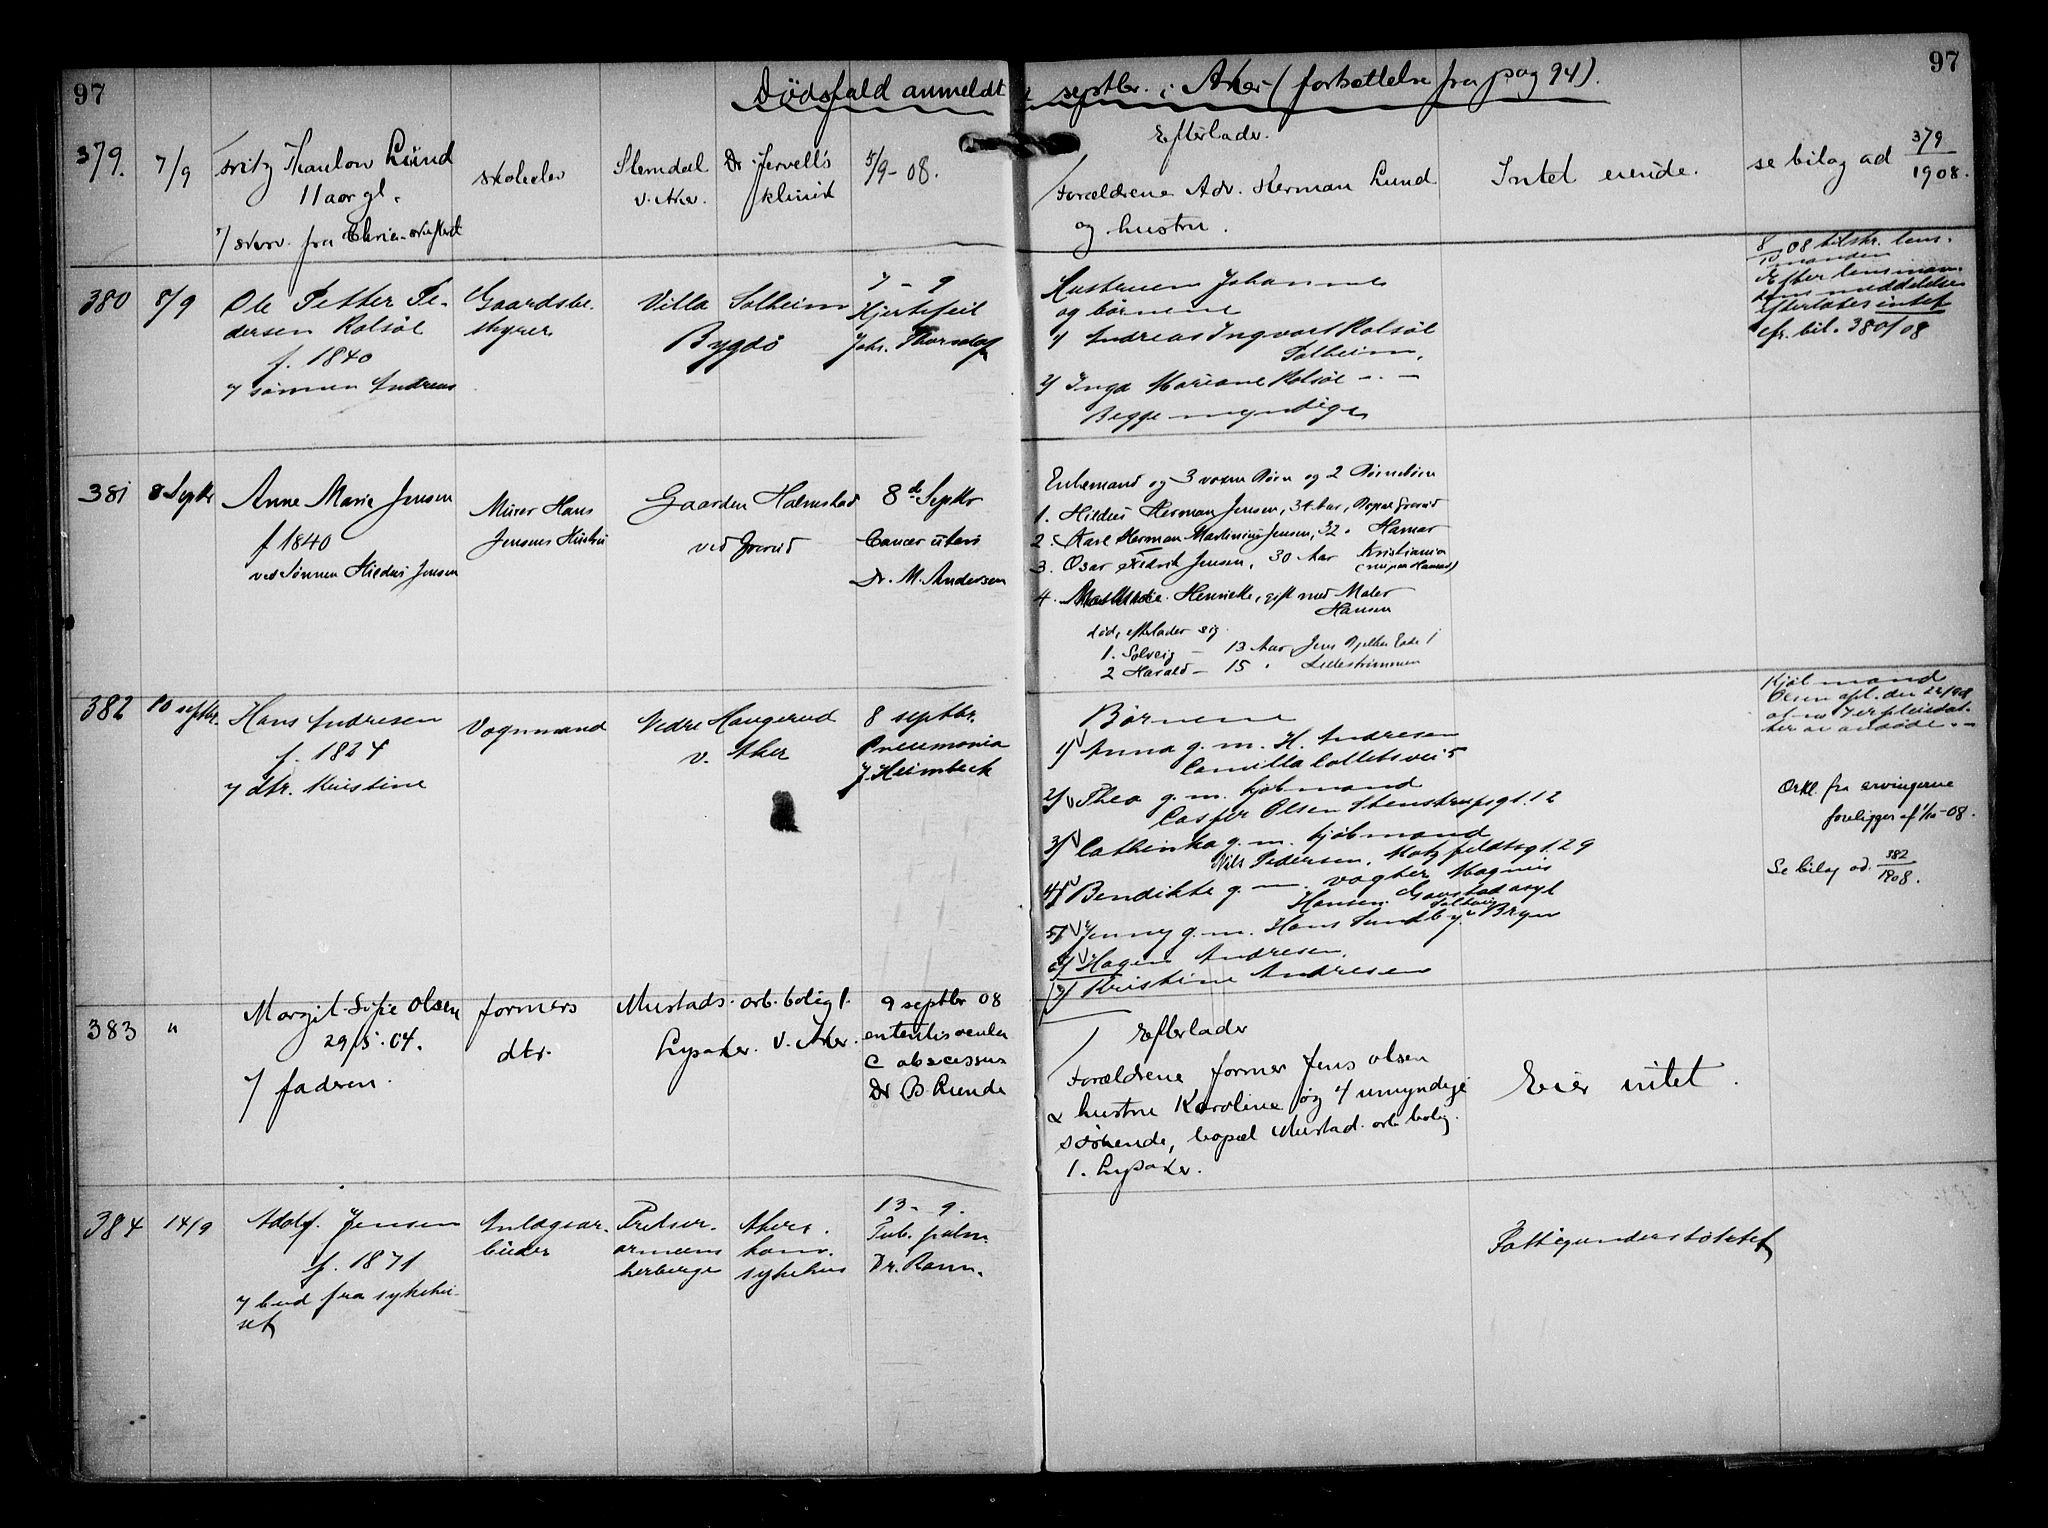 97
Dödsfald anmeldt i septbr. i Aker (fortsættelse fra pag 94).
97
379.
7/9
Fritz Thaulow Lund
11 aar gl.
v/ skriv. fra Chria. skifteret
skoleelev
Slemdal
v. Aker.
Dr Jervell's
klinik
5/9-08.
Efterlader.
Forældrene Adv. Herman Lund
og hustru.
Intet eiende.
se bilag ad 379/1908.
380
8/9
Ole Petter Pe-
dersen Rolsöe
f. 1840
v sönnen Andreas
Gaardsbe-
styrer
Villa Solheim
Bygdö
7-9
Hjertefeil
Johs. Thorsdag
Hustruen Johanne
og börnene
1/ Andreas Ingvart Rolsöe
Solheim,
2/ Inga Mariane Rolsöe - . -
Begge myndige
8/10 08 tilskr. lens-
manden
Efter lensman-
dens meddelelse
efterlates intet
cfr. bil. 380/08
381
8 Septbr
Anne Marie Jensen
f 1840
ved Sønnen Hildus Jensen
Murer Hans
Jensens Hustru
Gaarden Holmstad
ved Grorud
8de Septbr
Cancer uteri
Dr. M. Andersen
Enkemand og 3 voxne Børn og 2 Børnebörn
1. Hildus Herman Jensen, 34 Aar, Bopæl Grorud
2. Karl Herman Martinius Jensen, 32 " Hamar
3. Oscar Fredrik Jensen, 30 Aar Kristiania
4. Henriette, gift med Maler
Hansen
död, efterlader sig
1. Solveig - 13 Aar Jens Bjelkes Gade 1
2 Harald - 15 " Lillestrømmen
382
10 septbr.
Hans Andresen
f. 1824
v dtr. Kristine
Vognmand
Nedre Haugerud
v. Aker
8 septbr.
Pneumonia
J. Heimbeck
Börnene
1/ Anna g. m. H. Andresen
Camilla Colletsvei 5
2/ Thea g. m. kjöbmand
Casper Olsen Stenstrupsgt. 12
3/ Cathinka g. m. kjöbmand
Nils Pedersen, Motzfeldtsgt. 29
4/ Bendikte g. — . vogter Magnus
Hansen. Gaustad asyl
5/ Jenny g. m. Hans Sundby. Solhaug Bryn
6/ Hagen Andresen.
7/ Kristine Andresen
Kjöbmand
Olsen
Erkl. fra arvingerne
foreligger af 1/10-08.
Se bilag ad. 382/1908.
383
"
Margit Sofie Olsen
29/5-04.
v/ faderen.
formers
dtr.
Mustads arb. bolig 1.
Lysaker. v. Aker.
9 septbr 08
c abscessus
Dr B Lunde
Efterlader
Forældrene former Jens Olsen
& hustru Karoline og 4 umyndige
söskende, bopæl Mustad. arb bolig.
1. Lysaker.
Eier intet.
384
14/9
Adolf Jensen
f. 1871
v bud fra sykehu-
set
Anlægsar-
beider
Frelses-
armeens
herberge
Akers
kom.
sykehus
13-9.
Tub. pulm.
Dr. Ravn.
Fattigunderstöttet